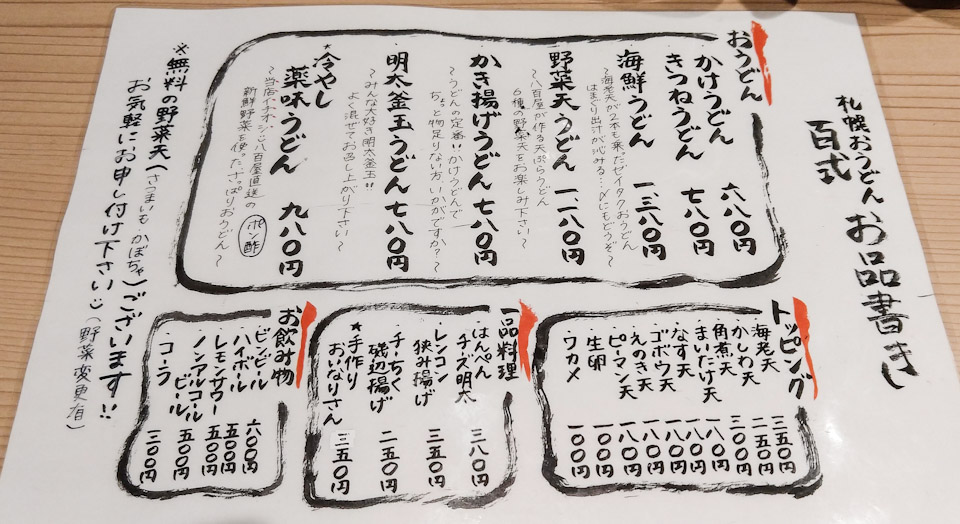 札幌おうどん
百式
お品書き
おうどん
かけうどん 六八〇円
きつねうどん 七八〇円
海鮮うどん 一、三八〇円
～海老天が2本も乗ったゼイタクおうどん
はまぐり出汁が沁みる…〆にもどうぞ～
野菜天うどん 一、一八〇円
～八百屋が作る天ぷらうどん
6種の野菜天をお楽しみ下さい～
かき揚げうどん 七八〇円
～うどんの定番!!かけうどんで
ちょっと物足りない方、いかがですか?～
明太釜玉うどん 七八〇円
～みんな大好き明太釜玉!!
よく混ぜてお召し上がり下さい～
*冷やし
薬味うどん 九八〇円
～当店イチオシ♪八百屋直送の
新鮮野菜を使ったさっぱりおうどん～
ポン酢
トッピング
海老天 三五〇円
かしわ天 二五〇円
角煮天 三〇〇円
まいたけ天 一八〇円
なす天 一八〇円
ゴボウ天 一八〇円
えのき天 一八〇円
ピーマン天 一八〇円
生卵 一〇〇円
ワカメ 一〇〇円
一品料理
はんぺん
チーズ明太 三八〇円
レンコン
挟み揚げ 三五〇円
チーちく
磯辺揚げ 二五〇円
★手作り
おいなりさん 三五〇円
お飲み物
ビンビール 六〇〇円
ハイボール 五〇〇円
レモンサワー 五〇〇円
ノンアルコール
ビール 五〇〇円
コーラ 三〇〇円
※無料の野菜天(さつまいも・かぼちゃ)ございます!!
お気軽にお申し付け下さい(野菜変更有)